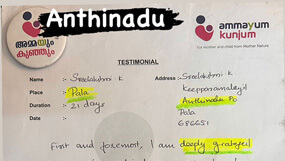 Anthinadu
അമ്മയും
കുഞ്ഞും
ammayum
kunjum
For mother and child from Mother Nature
TESTIMONIAL
Name :- Sreelakshmi. K
Address:- Sreelakshmi. K
Place :- Pala
Duration :- 21 days
Anthinadu PO
Pala
686651
First and foremost, I am deeply grateful